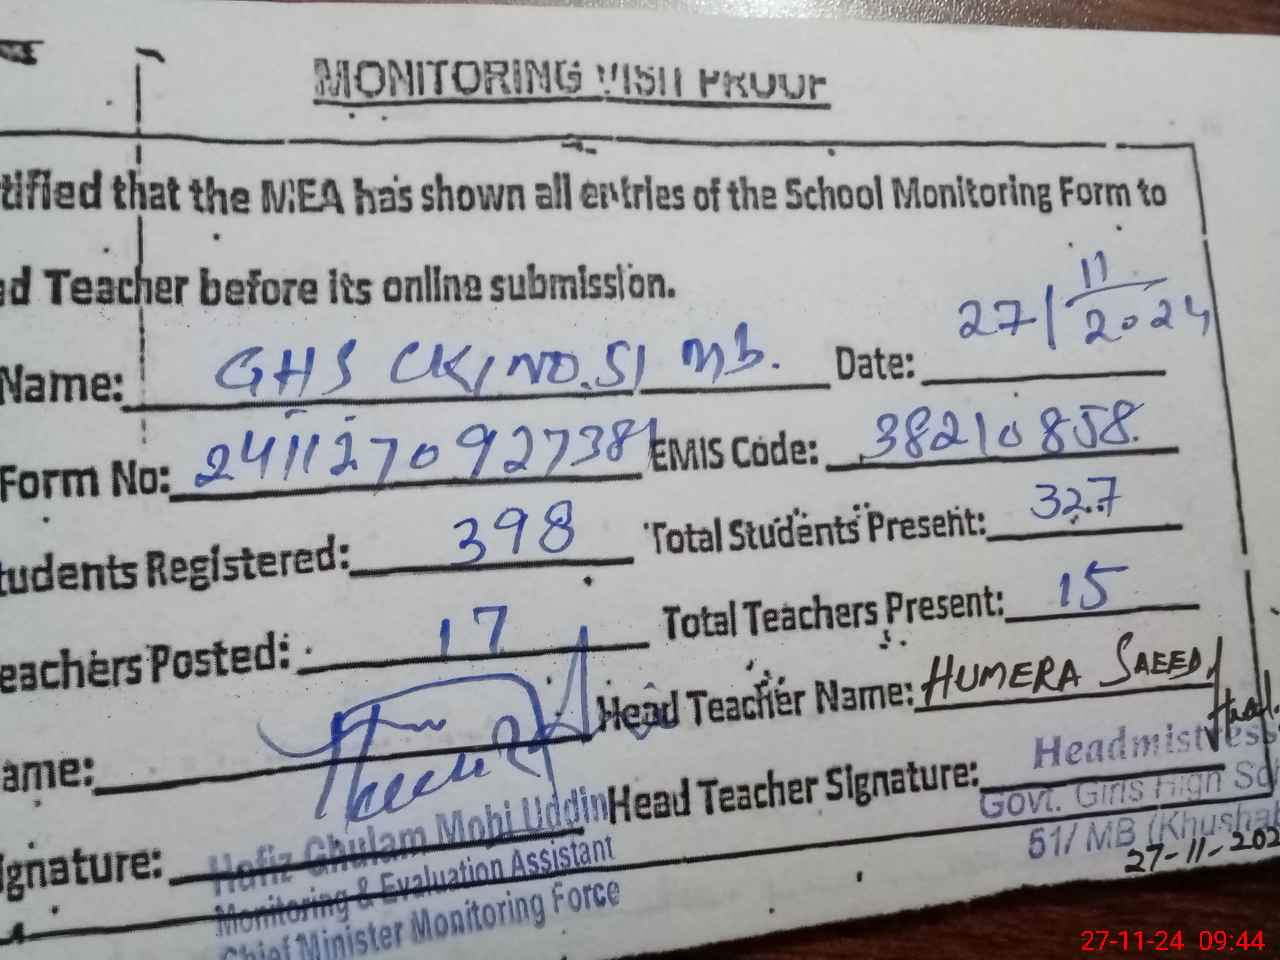 MONITORING VISIT PROOF
tified that the MEA has shown all entries of the School Monitoring Form to
ad Teacher before its online submission.
Name: GHS CK/NO.51 MB. Date: 27/11/2024
Form No: 241127092738 EMIS Code: 38210858.
tudents Registered: 398 Total Students Present: 327
eachers Posted: 17 Total Teachers Present: 15
ame: Head Teacher Name: HUMERA SAEED
ignature: Head Teacher Signature:
Hafiz Ghulam Mohi Uddin
Monitoring & Evaluation Assistant
Chief Minister Monitoring Force
Headmistress
Govt. Girls High Sch
51/ MB (Khushab
27-11-202
27-11-24 09:44